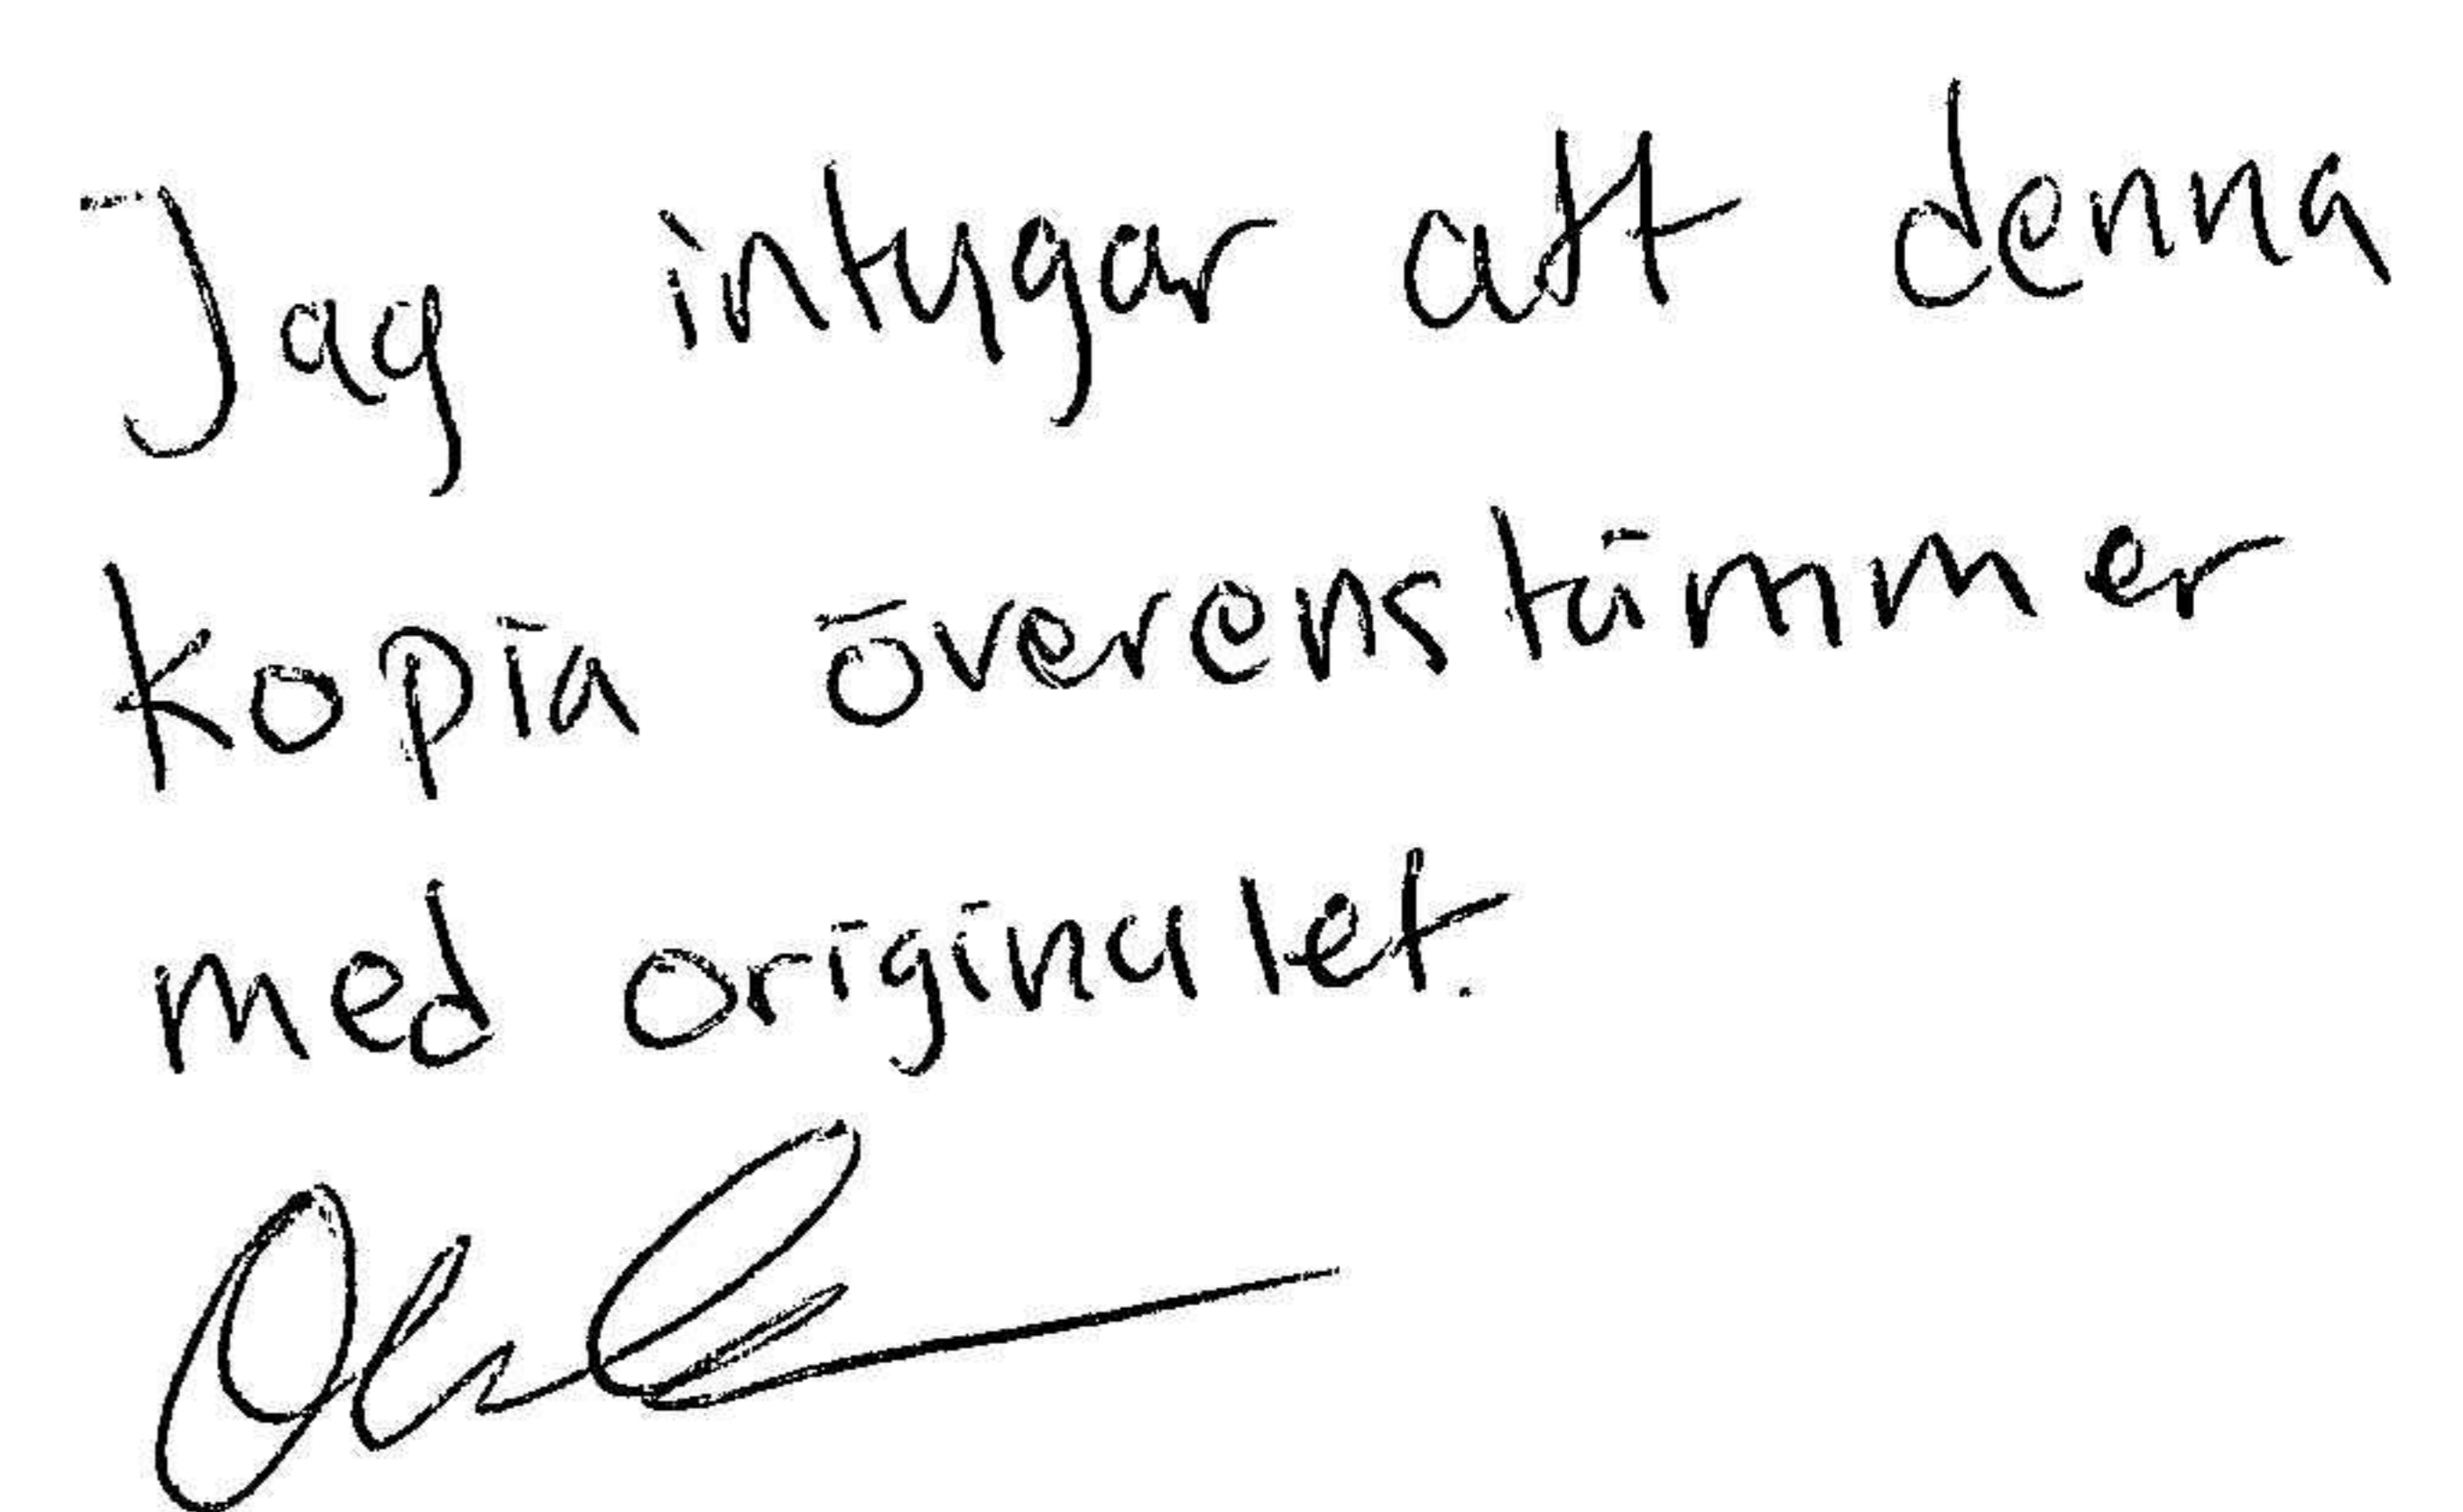 Jag intygar att denna
kopia överenstämmer
med originalet.